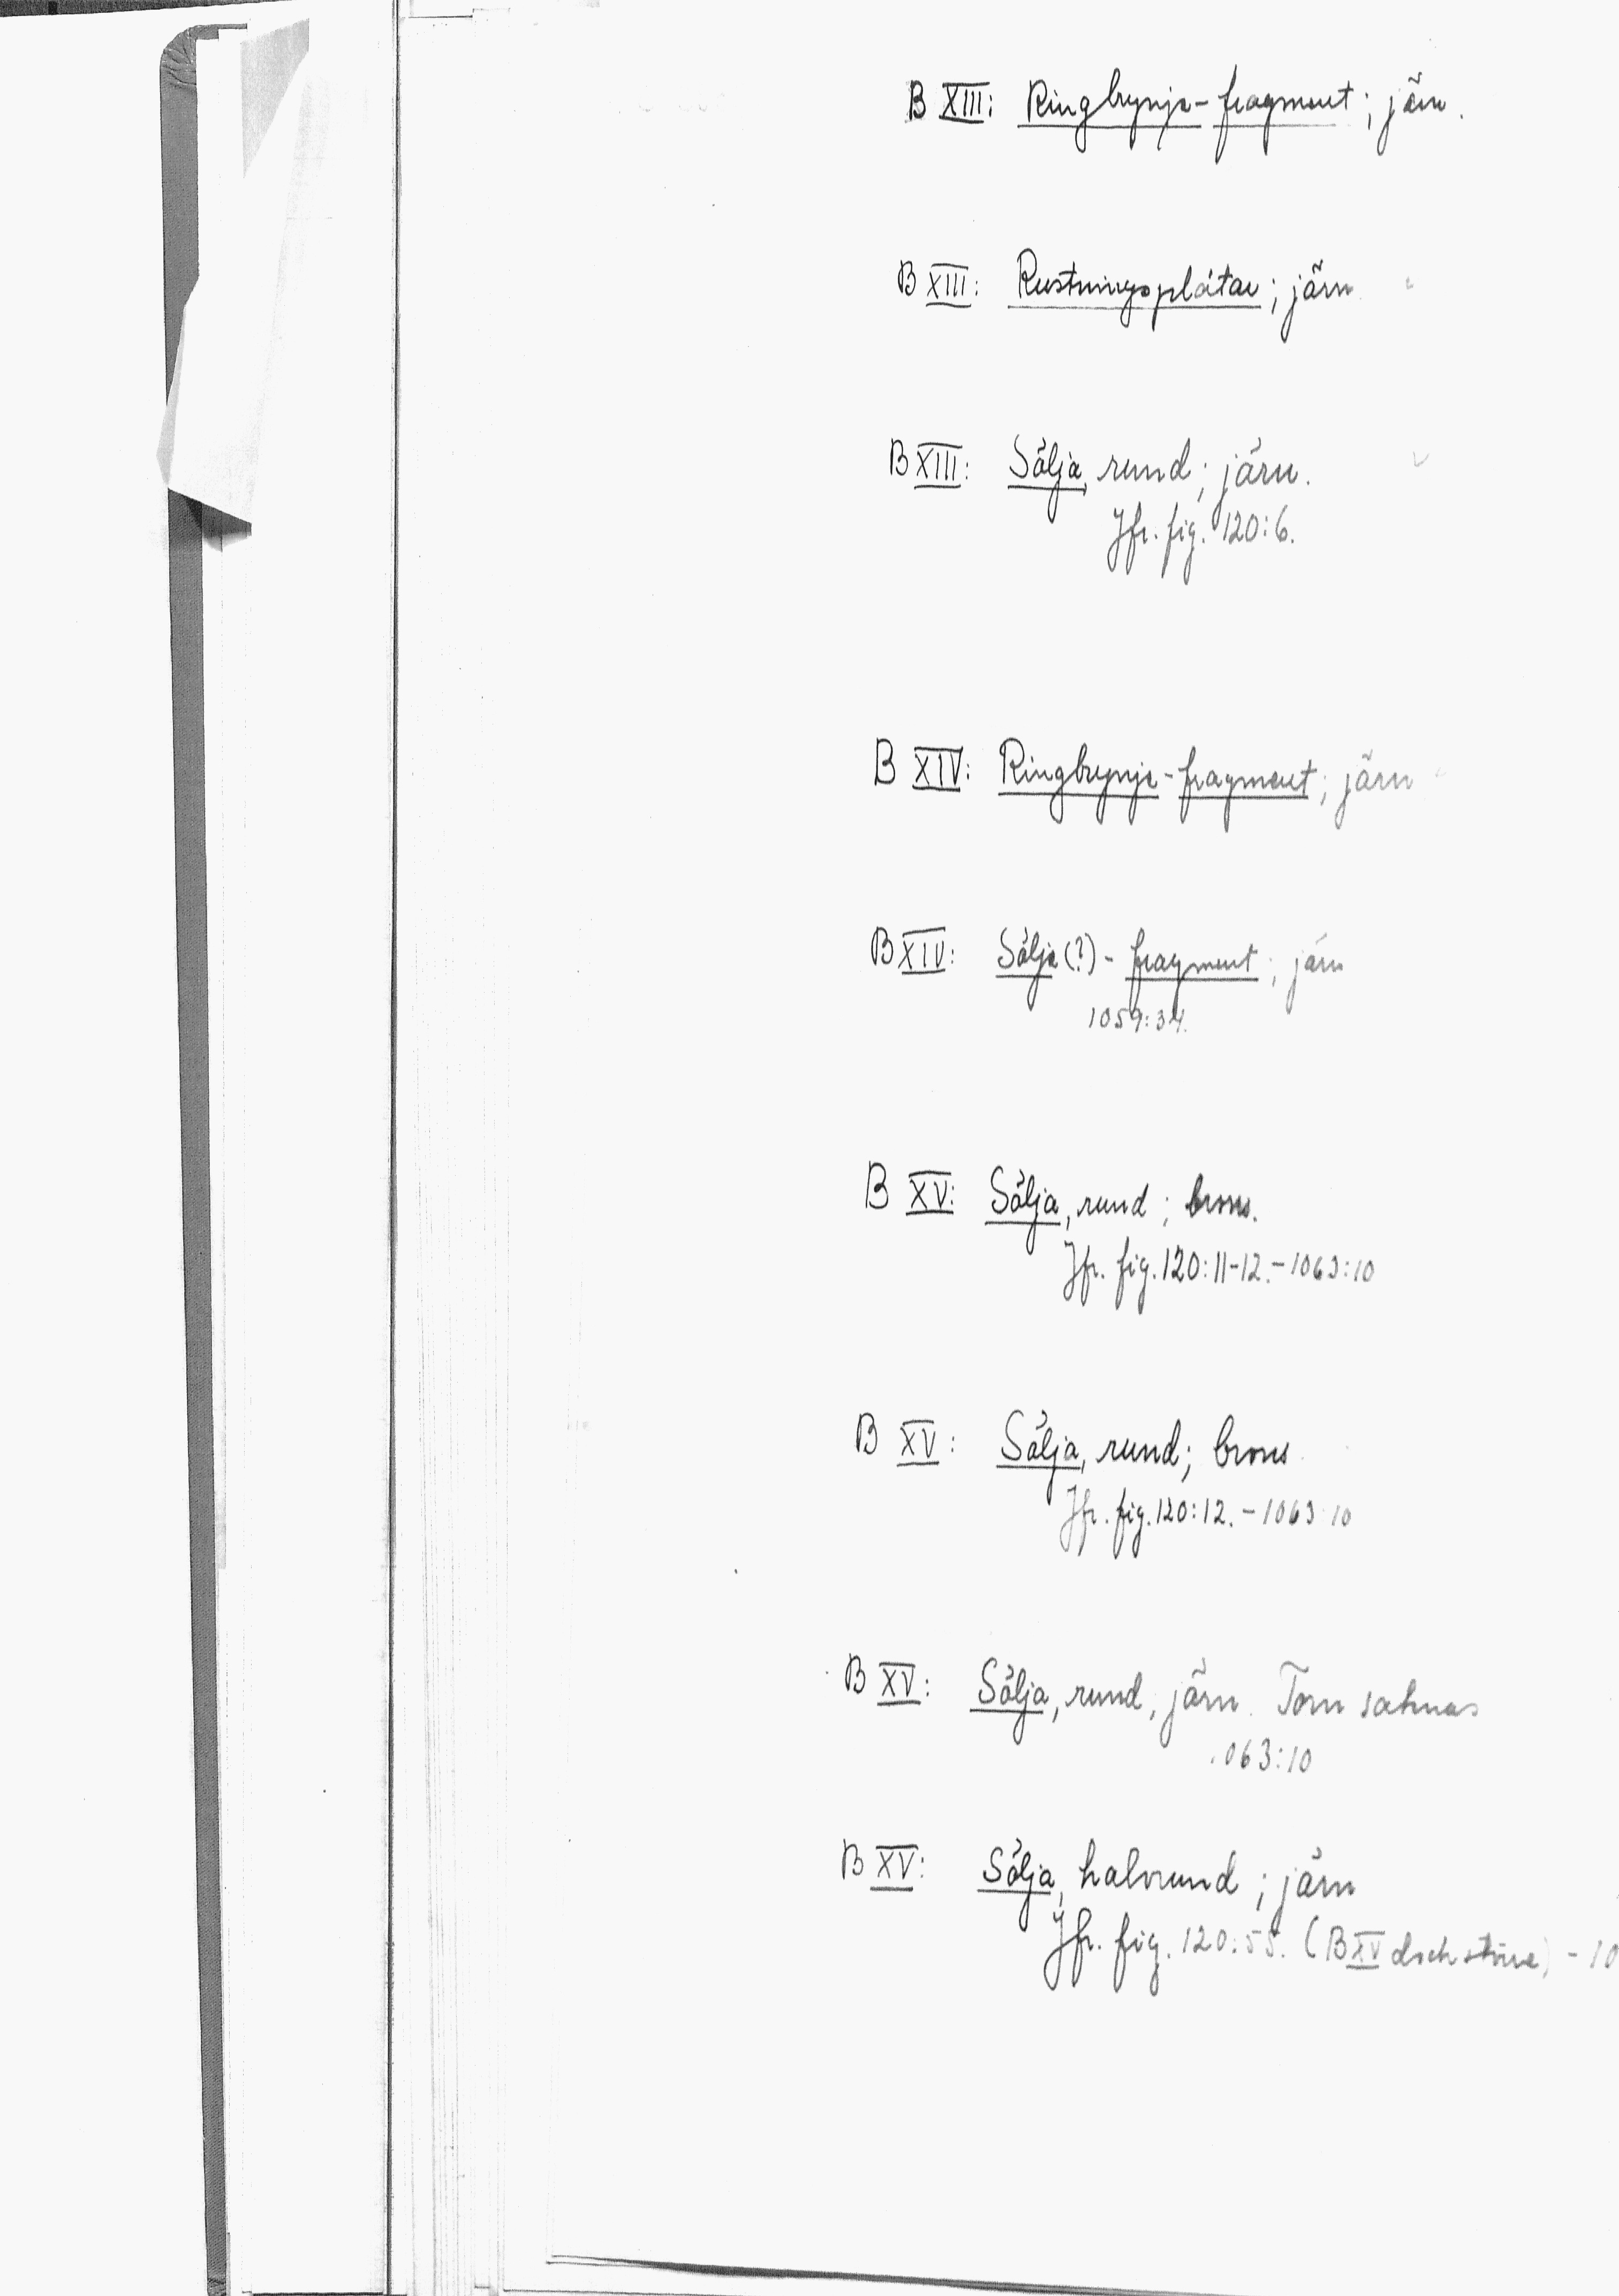 B XIII: Ringbrynje-fragment; järn.
B XIII: Rustningsplåtar; järn
B XIII: Sölja, rund; järn.
Jfr. fig. 120:6.
B XIV: Ringbrynje-fragment; järn
B XIV: Sölja (?)-fragment; järn
1059:34.
B XV: Sölja, rund; brons.
Jfr. fig. 120:11-12. - 1063:10
B XV: Sölja, rund; brons
Jfr. fig. 120:12. - 1063:10
B XV: Sölja, rund, järn. Torn saknas
063:10
B XV: Sölja, halvrund; järn
Jfr. fig. 120:55. (B XV dock större) - 10